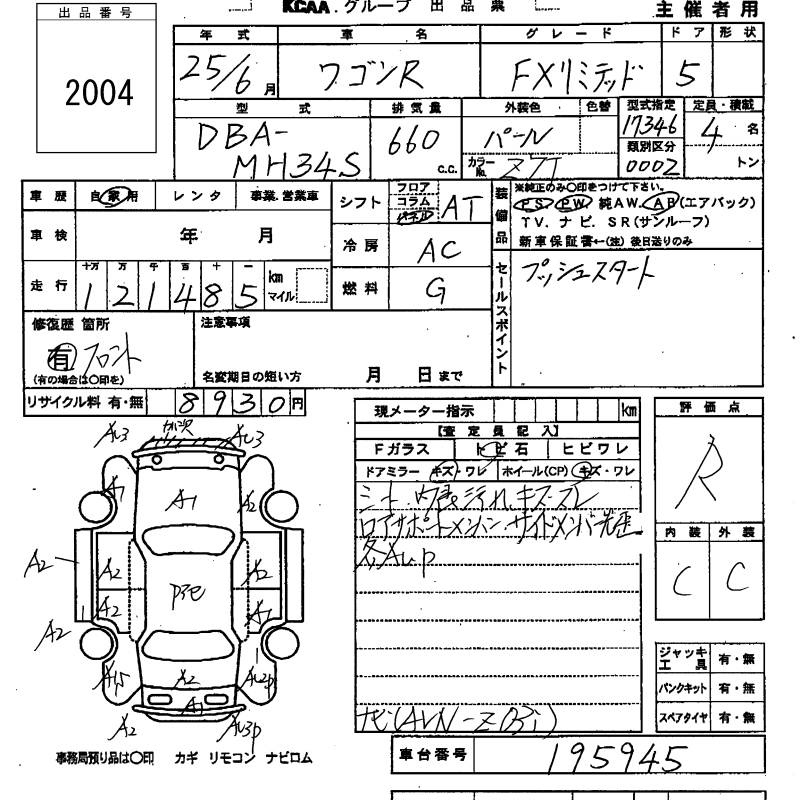 出品番号
2004
KCAA.グループ 出品票
主催者用
年式 車名 グレード ドア 形状
25/6月 ワゴンR FXリミテッド 5
型式 排気量 外装色 色替 型式指定 定員・積載
DBA-MH34S 660 c.c. パール カラーNo. Z7T 17346 4名
類別区分 0002 トン
車歴 自家用 レンタ 事業.営業車
車検 年 月
走行 十万 万 千 百 十 一
121485 km マイル
シフト フロア コラム パネル AT
冷房 AC
燃料 G
装備品
※純正のみ〇印をつけて下さい。
PS PW 純AW. AB(エアバック)
TV. ナビ. SR(サンルーフ)
新車保証書←(注) 後日送りのみ
セールスポイント
プッシュスタート
修復歴 箇所
有 フロント
(有の場合は〇印を)
注意事項
名変期日の短い方 月 日まで
リサイクル料 有・無 8930円
現メーター指示 km
【査定員記入】
Fガラス トビ石 ヒビワレ
ドアミラー キズ・ワレ ホイール(CP) キズ・ワレ
シート、内張汚れ、キズ・スレ
ロアサポートメンバー サイドメンバー先歪
各AU.P
ナビ(AVN-Z03i)
評価点
R
内装 外装
C C
ジャッキ工具 有・無
パンクキット 有・無
スペアタイヤ 有・無
AU3 AU3
A1 A1 A2
A2 A2 A2
A2 A1
A2
A2
A2 A1
事務局預り品は〇印 カギ リモコン ナビロム
車台番号 195945